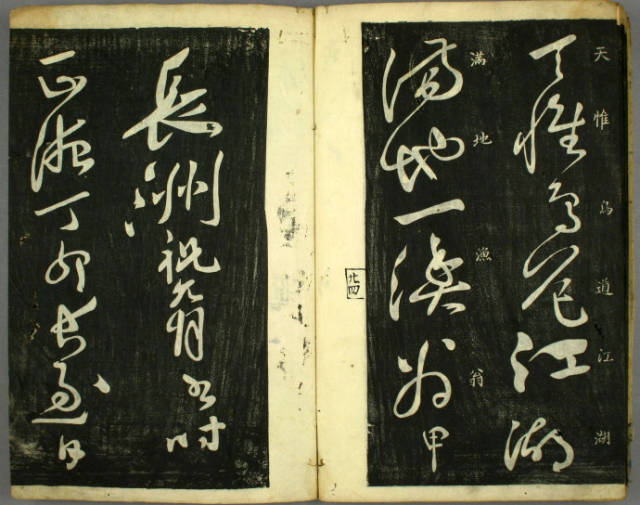 天惟鳥道江湖
天惟鳥道江湖
滿地漁翁
滿地一漁翁甲
廿四
長洲祝允明書時
正德丁卯長至日